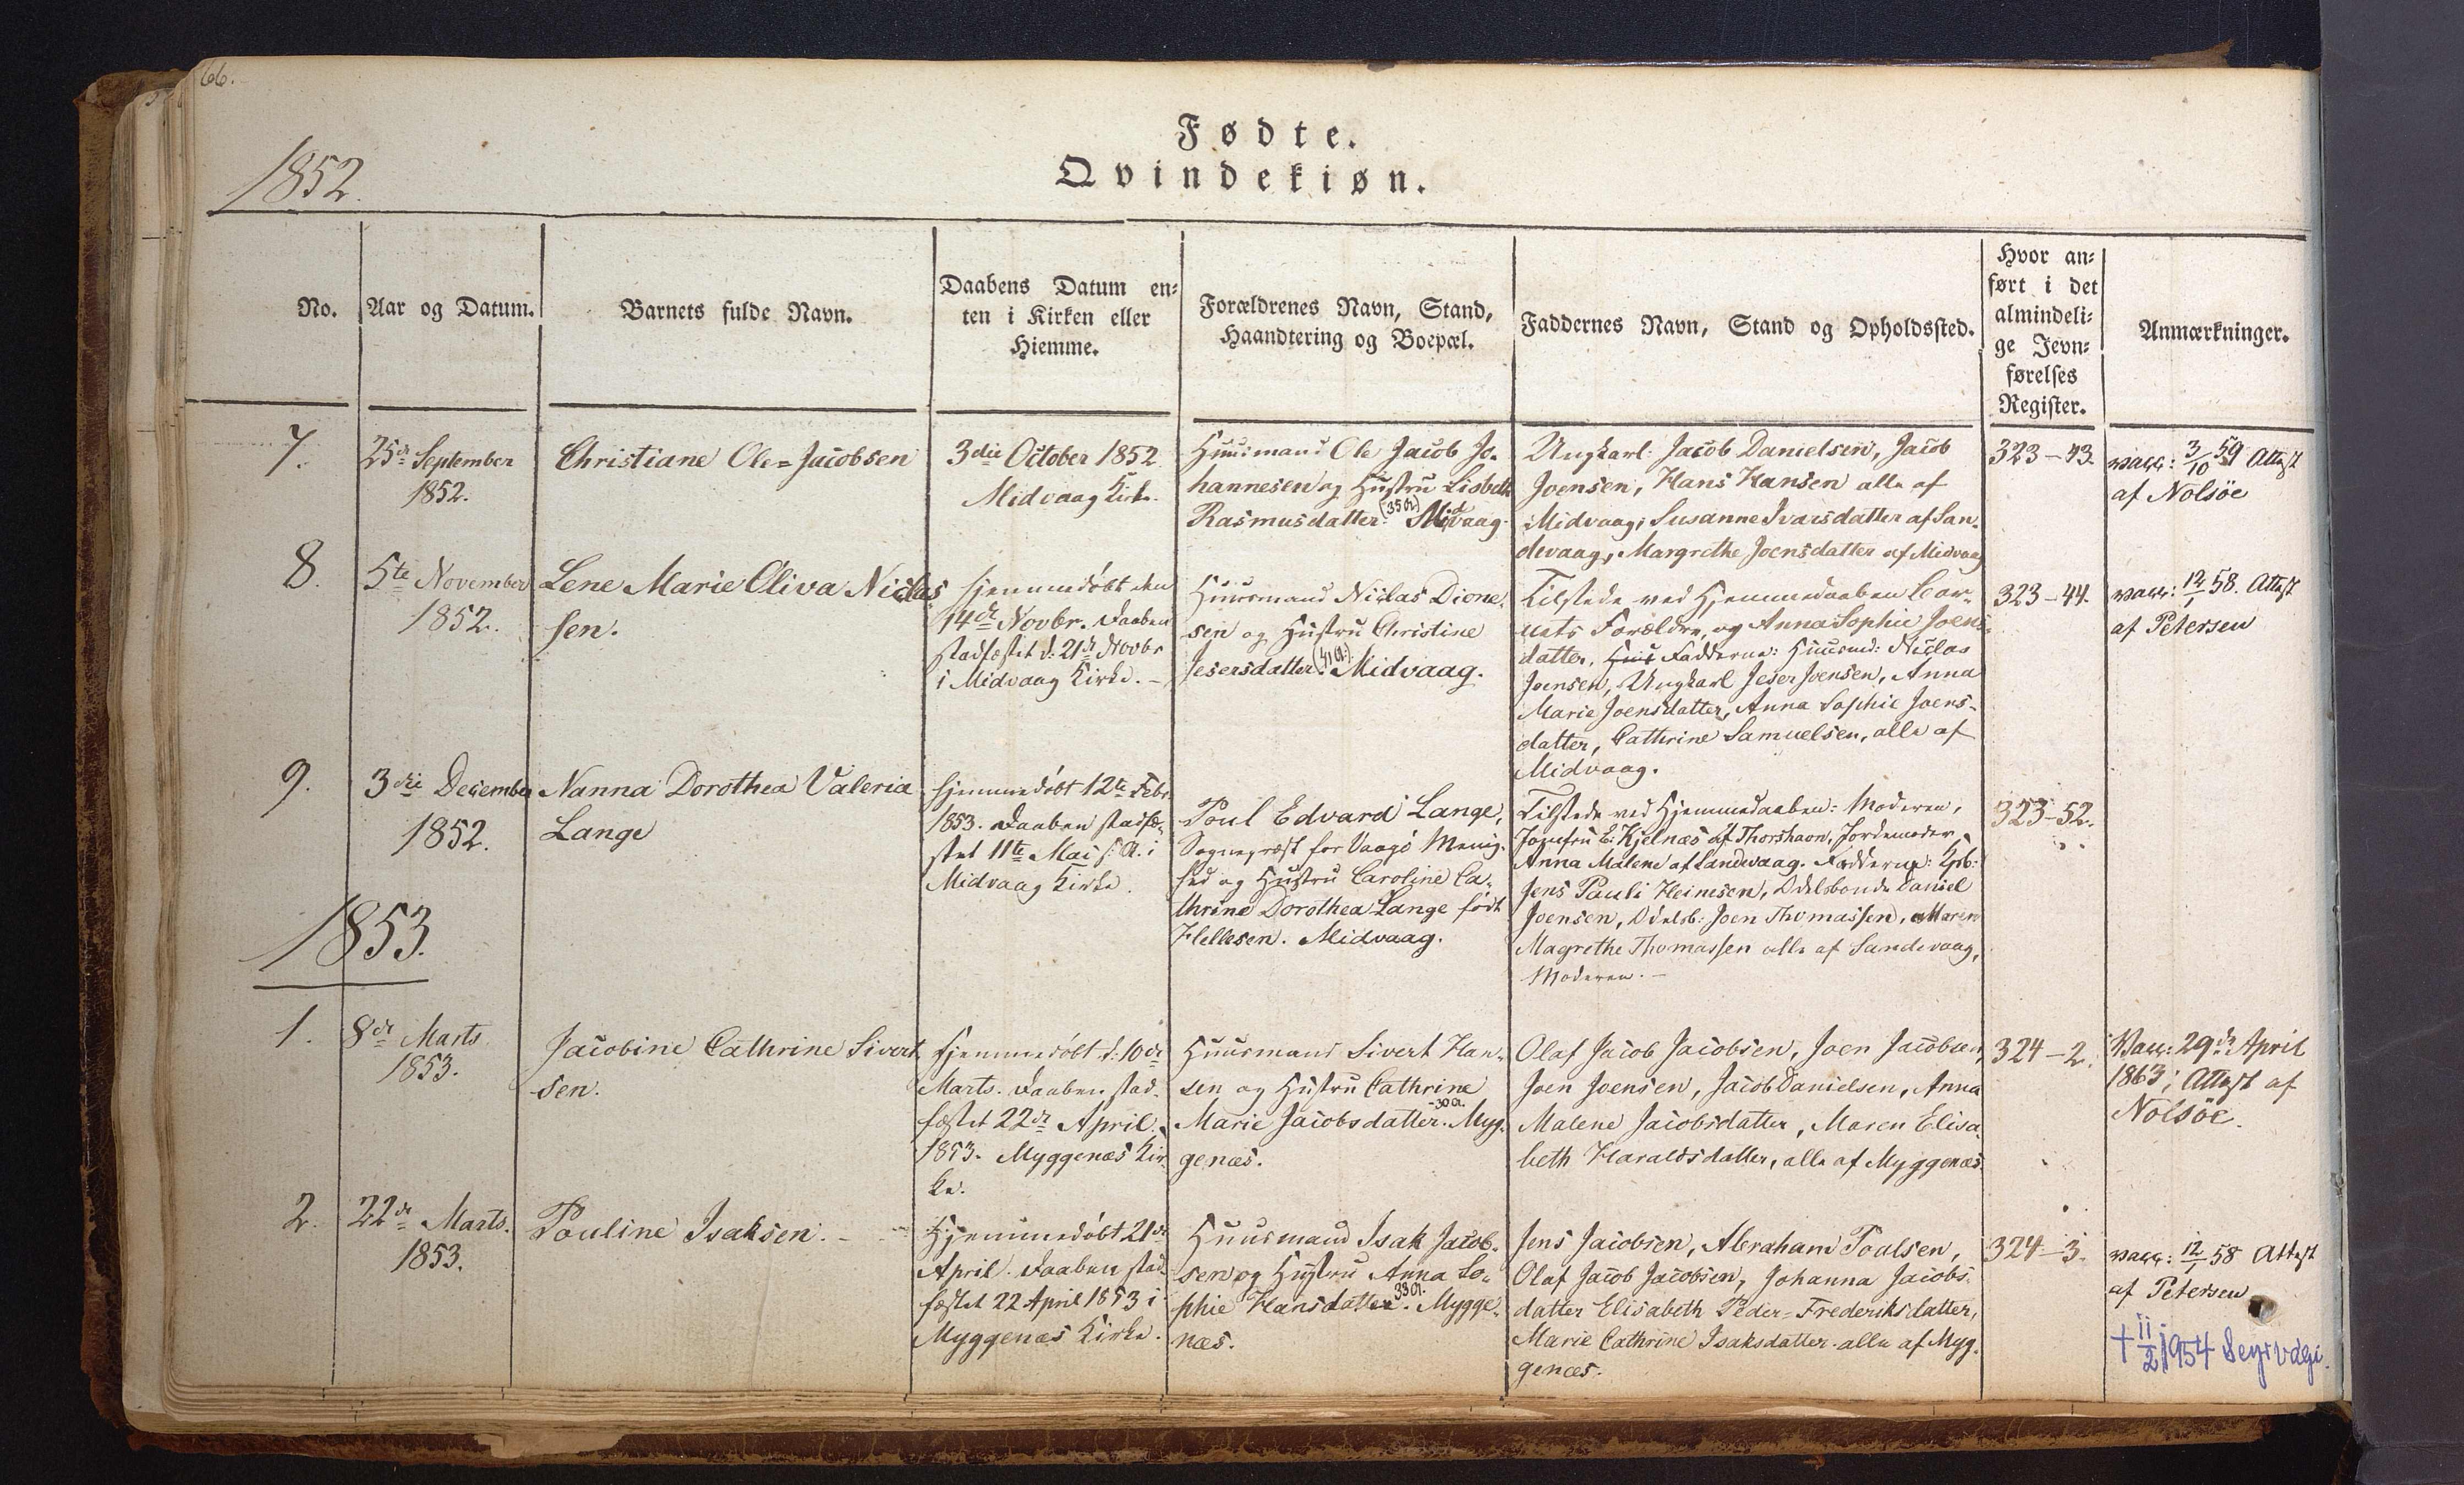 66.
Fødte.
Qvindekiøn.
1852.
No.
Aar og Datum.
Barnets fulde Navn.
Daabens Datum en-
ten i Kirken eller
Hiemme.
Forældrenes Navn, Stand,
Haandtering og Boepæl.
Faddernes Navn, Stand og Opholdssted.
Hvor an-
ført i det
almindeli-
ge Jevn-
førelses
Register.
Anmærkninger.
7.
25de September
1852.
Christiane Ole=Jacobsen
3die October 1852
Midvaag Kirke.
Huusmand Ole Jacob Jo-
hannesen og Hustru Lisbeth
Rasmusdatter (35 A.) Midvaag.
Ungkarl: Jacob Danielsen, Jacob
Joensen, Hans Hansen alle af
Midvaag, Susanne Ivarsdatter af San-
devaag, Margrethe Joensdatter af Midvaag
323-43.
vacc: 3/10 59 Attest
af Nolsöe
8.
5te November
1852.
Lene Marie Oliva Niclas
sen.
Hjemmedöbt den
14de Novbr. Daaben
stadfæstet d: 21de Novbr
i Midvaag Kirke. -
Huusmand Niclas Dione-
sen og Hustru Christine
Jesersdatter (41 A.) Midvaag.
Tilstede ved Hjemmedaaben Bar-
nets Forældre, og Anna Sophie Joens-
datter. Fadderne: Huusmd: Niclas
Joensen, Ungkarl Jeser Joensen, Anna
Marie Joensdatter, Anna Sophie Joens-
datter, Cathrine Samuelsen, alle af
Midvaag.
323-44.
vacc: 12/1 58. Attest
af Petersen
9.
3die December
1852.
Nanna Dorothea Valeria
Lange
Hjemmedöbt 12te Febr
1853. Daaben stadfæ-
stet 11te Mai s: A. i
Midvaag Kirke.
Poul Edvard Lange,
Sognepræst for Vaagö Menig-
hed og Hustru Caroline Ca-
thrine Dorothea Lange födt
Hellesen. Midvaag.
Tilstede ved Hjemmedaaben: Moderen,
Jomfru E. Hjelnæs af Thorshavn, Jordemoder
Anna Malene af Sandevaag. Fadderne: Kjb:
Jens Pauli Heinesen, Odelsbonde Daniel
Joensen, Odelsb: Joen Thomassen, Maren
Magrethe Thomassen alle af Sandevaag,
Moderen. -
323-52.
1853.
1.
8de Marts
1853.
Jacobine Cathrine Sivert
sen.
Hjemmedöbt d: 10de
Marts. Daaben stad-
fæstet 22de April
1853. Myggenæs Kir-
ke.
Huusmand Sivert Han-
sen og Hustru Cathrine
Marie Jacobsdatter - 30 A. Myg-
genæs.
Olaf Jacob Jacobsen, Joen Jacobsen,
Joen Joensen, Jacob Danielsen, Anna
Malene Jacobsdatter, Maren Elisa-
beth Haraldsdatter, alle af Myggenæs.
324-2.
Vacc: 29de April
1863; Attest af
Nolsöe.
2.
22de Marts.
1853.
Pouline Isaksen. -
Hjemmedöbt 21de
April. Daaben stad-
fæstet 22 April 1853 i
Myggenæs Kirke.
Huusmand Isak Jacob-
sen og Hustru Anna So-
phie Hansdatter 33 A. Mygge-
næs.
Jens Jacobsen, Abraham Poulsen,
Olaf Jacob Jacobsen, Johanna Jacobs-
datter Elisabeth Peder=Frederiksdatter,
Marie Cathrine Isaksdatter alle af Myg-
genæs.
324-3.
vacc: 12/1 58 Attest
af Petersen
+ 11/2 1954 Seyrvági.